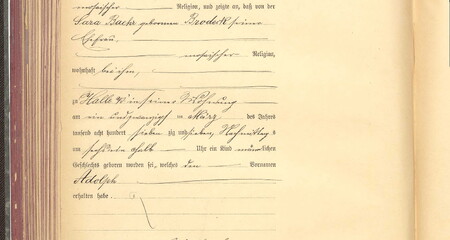 mosaischer Religion, und zeigte an, daß von der
Sara Baehr geborenen Broder seine
Ehefrau
mosaischer Religion,
wohnhaft bei ihm,
zu Halle in seiner Wohnung
am ein und zwanzigsten März des Jahres
tausend acht hundert siebenzig und sieben, Nachmittags
um sechs ein halb Uhr ein Kind männlichen
Geschlechts geboren worden sei, welches den Vornamen
Adolph
erhalten habe.